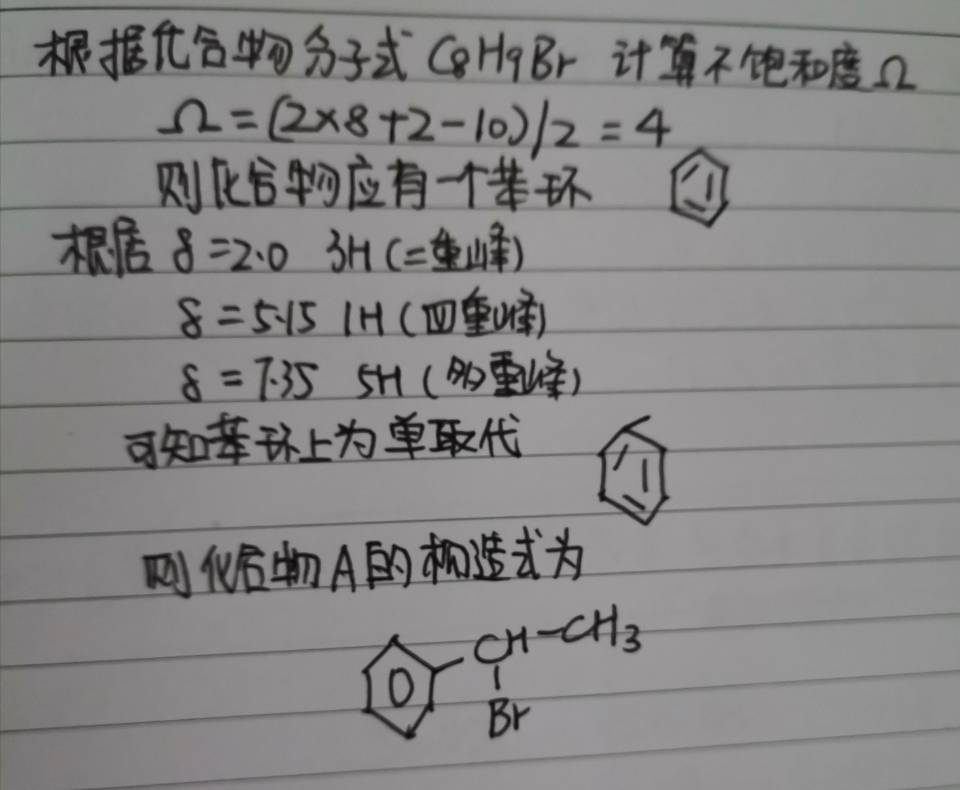 根据化合物分子式 C8H9Br 计算不饱和度Ω
Ω=(2×8+2-10)/2=4
则化合物应有一个苯环
根据 δ=2.0 3H(二重峰)
δ=5.15 1H(四重峰)
δ=7.35 5H(多重峰)
可知苯环上为单取代
则化合物A的构造式为
CH-CH3
Br